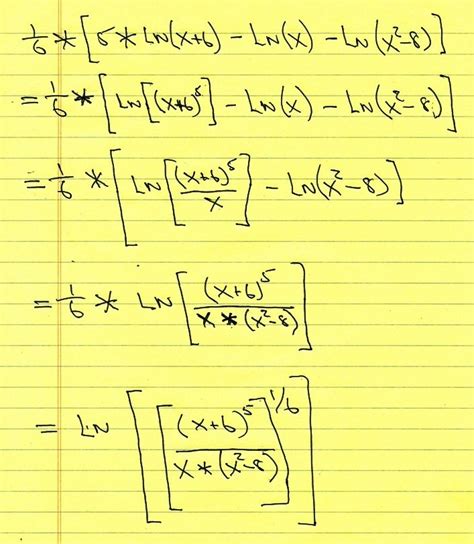 1/6 * [5 * LN(x+6) - LN(x) - LN(x²-8)]
= 1/6 * [LN[(x+6)⁵] - LN(x) - LN(x²-8)]
= 1/6 * [LN[(x+6)⁵/x] - LN(x²-8)]
= 1/6 * LN[(x+6)⁵/(x * (x²-8))]
= LN[[(x+6)⁵/(x * (x²-8))]^1/6]